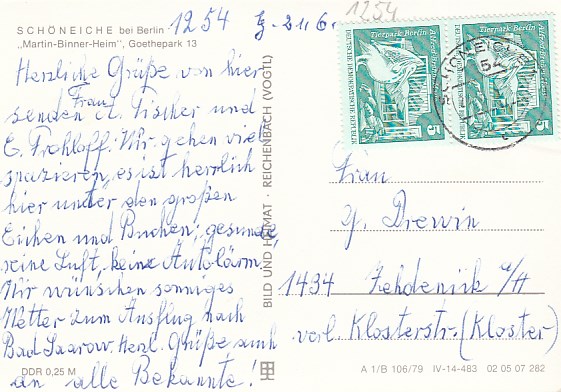 SCHÖNEICHE bei Berlin
„Martin-Binner-Heim", Goethepark 13
1254
1254
Herzliche Grüße von hier
senden Frau A. Fischer und
E. Frohloff. Wir gehen viel
spazieren, es ist herrlich
hier unter den großen
Eichen und Buchen; gesunde,
reine Luft, keine Autolärm.
Wir wünschen sonniges
Wetter zum Ausflug nach
Bad Saarow. Herzl. Grüße auch
an alle Bekannte!
DDR 0,25 M
BILD UND HEIMAT · REICHENBACH (VOGTL)
Tierpark Berlin
Alfred-Brehm-Haus
DEUTSCHE DEMOKRATISCHE REPUBLIK
5
Tierpark Berlin
Alfred-Brehm-Haus
DEUTSCHE DEMOKRATISCHE REPUBLIK
5
SCHÖNEICHE
1254
Frau
Drewin
1434 Zehdenick a/H
verl. Klosterstr. (Kloster)
A 1/B 106/79 IV-14-483 02 05 07 282